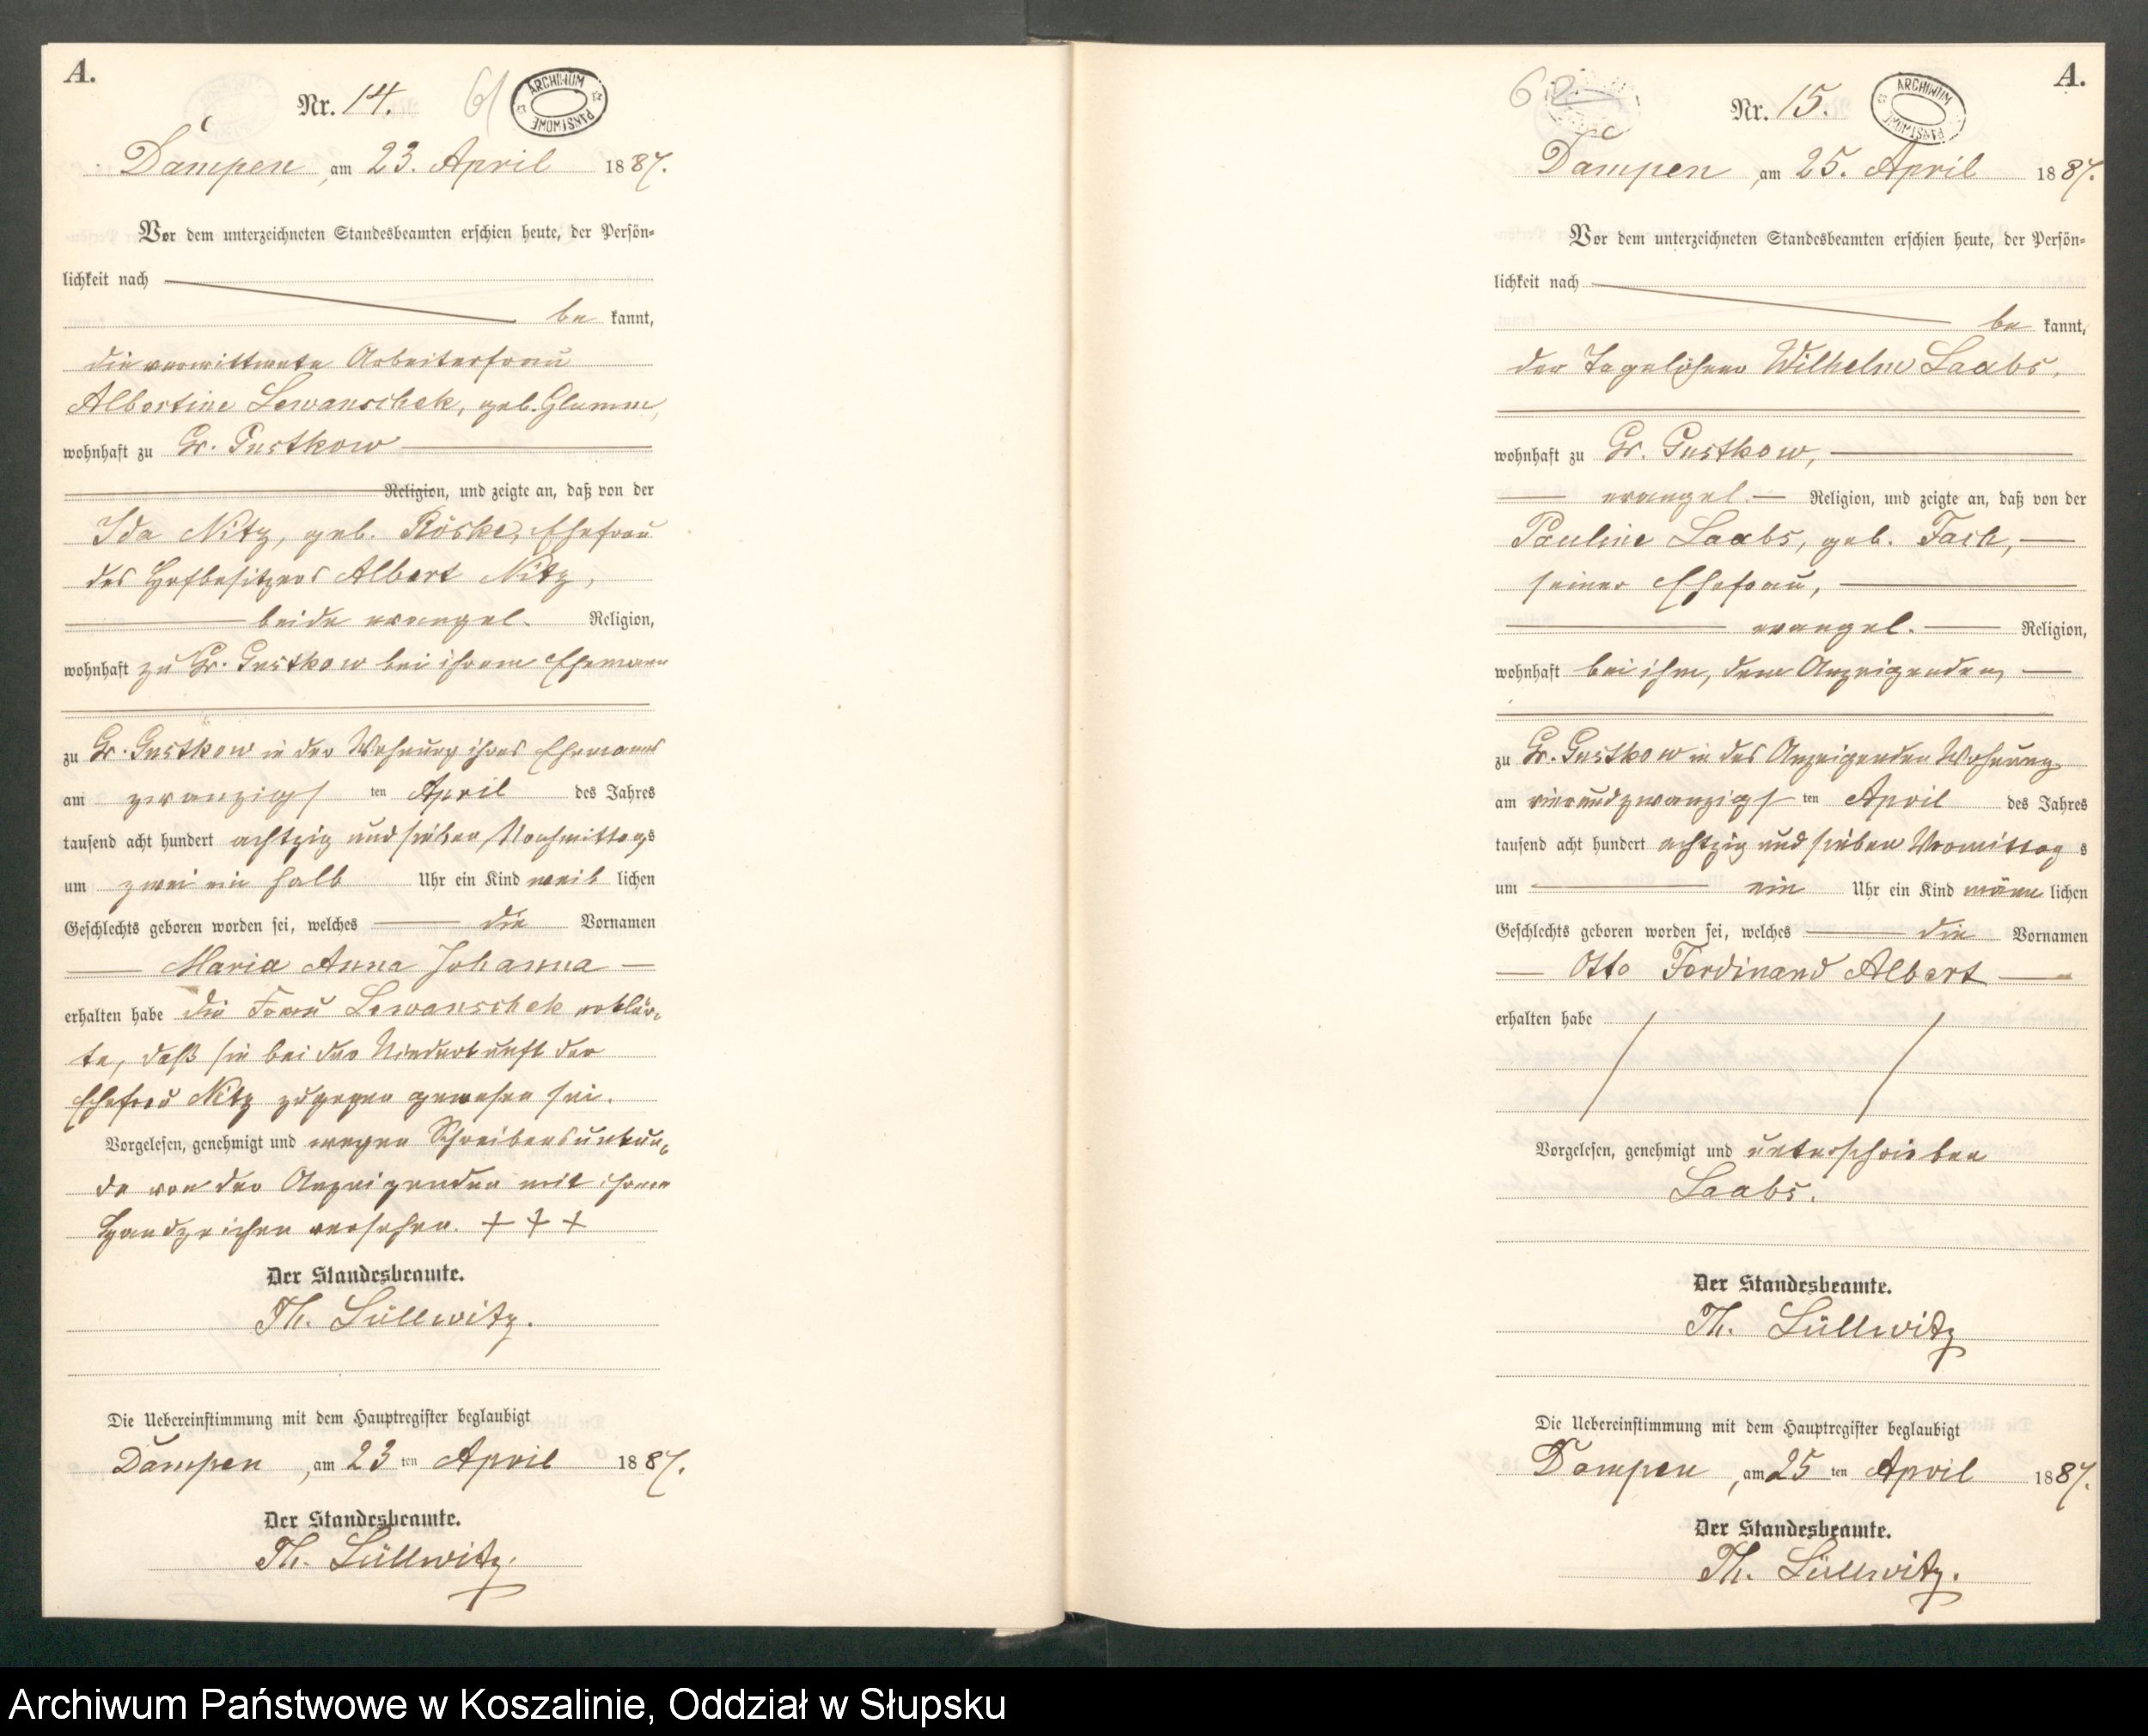 A.
Nr. 14. 61
ARCHIWUM PAŃSTWOWE
Dampen, am 23. April 1887.
Vor dem unterzeichneten Standesbeamten erschien heute, der Persön-
lichkeit nach
be kannt,
die verwittwete Arbeiterfrau
Albertine Lewanschek, geb. Glumm,
wohnhaft zu Gr. Gustkow
Religion, und zeigte an, daß von der
Ida Nitz, geb. Röske, Ehefrau
des Hofbesitzers Albert Nitz,
beide evangel. Religion,
wohnhaft zu Gr. Gustkow bei ihrem Ehemann
zu Gr. Gustkow in der Wohnung ihres Ehemanns
am zwanzigs ten April des Jahres
tausend acht hundert achtzig und sieben Nachmittags
um zwei ein halb Uhr ein Kind weib lichen
Geschlechts geboren worden sei, welches die Vornamen
Maria Anna Johanna
erhalten habe die Frau Lewanschek erklär-
te, daß sie bei der Niederkunft der
Ehefrau Nitz zugegen gewesen sei.
Vorgelesen, genehmigt und wegen Schreibensunkun-
de von der Anzeigenden mit ihrem
Handzeichen versehen. + + +
Der Standesbeamte.
Th. Süllwitz.
Die Uebereinstimmung mit dem Hauptregister beglaubigt
Dampen, am 23 ten April 1887.
Der Standesbeamte.
Th. Süllwitz.
A.
62 Nr. 15.
ARCHIWUM PAŃSTWOWE
Dampen, am 25. April 1887.
Vor dem unterzeichneten Standesbeamten erschien heute, der Persön-
lichkeit nach
be kannt,
der Tagelöhner Wilhelm Laabs,
wohnhaft zu Gr. Gustkow,
evangel. Religion, und zeigte an, daß von der
Pauline Laabs, geb. Fach,
seiner Ehefrau,
evangel. Religion,
wohnhaft bei ihm, dem Anzeigenden,
zu Gr. Gustkow in des Anzeigenden Wohnung
am vierundzwanzigs ten April des Jahres
tausend acht hundert achtzig und sieben Vormittag s
um ein Uhr ein Kind männ lichen
Geschlechts geboren worden sei, welches die Vornamen
Otto Ferdinand Albert
erhalten habe
Vorgelesen, genehmigt und unterschrieben
Laabs.
Der Standesbeamte.
Th. Süllwitz
Die Uebereinstimmung mit dem Hauptregister beglaubigt
Dampen, am 25 ten April 1887.
Der Standesbeamte.
Th. Süllwitz.
Archiwum Państwowe w Koszalinie, Oddział w Słupsku